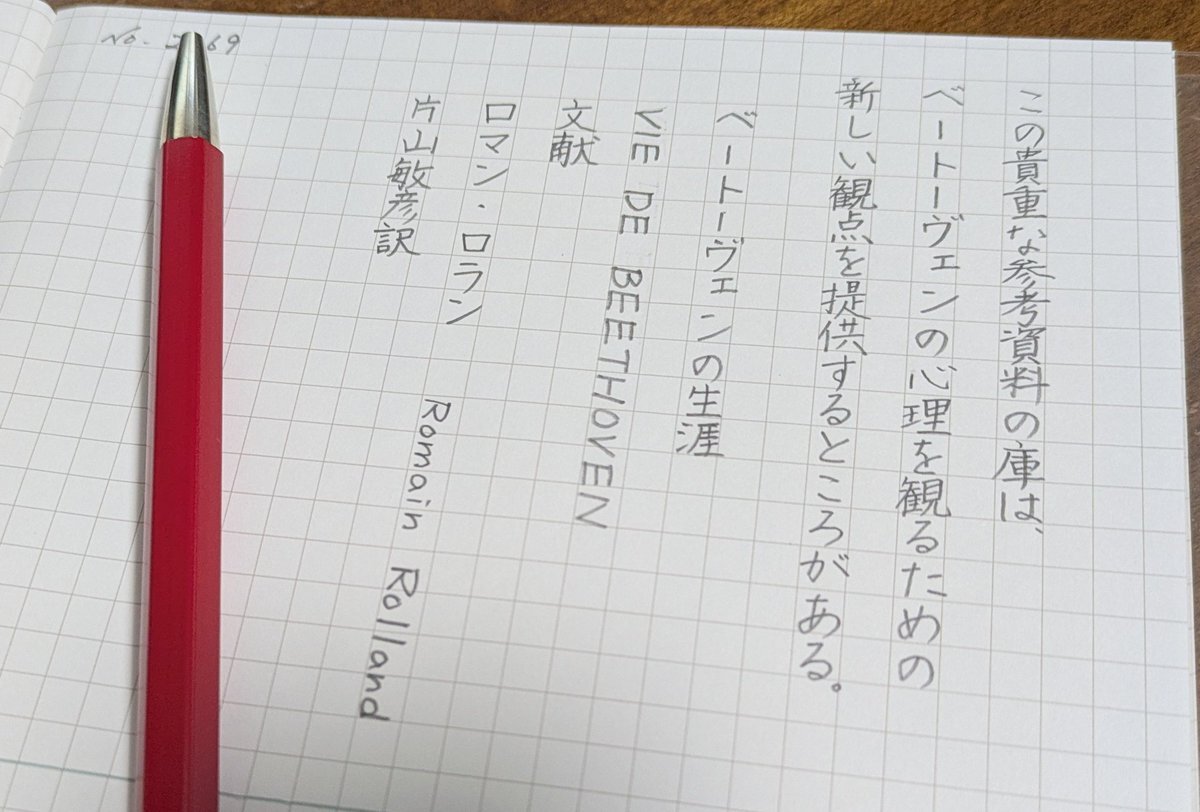 この貴重な参考資料の庫は、
ベートーヴェンの心理を観るための
新しい観点を提供するところがある。
ベートーヴェンの生涯
VIE DE BEETHOVEN
文献
ロマン・ロラン Romain Rolland
片山敏彦訳
No.